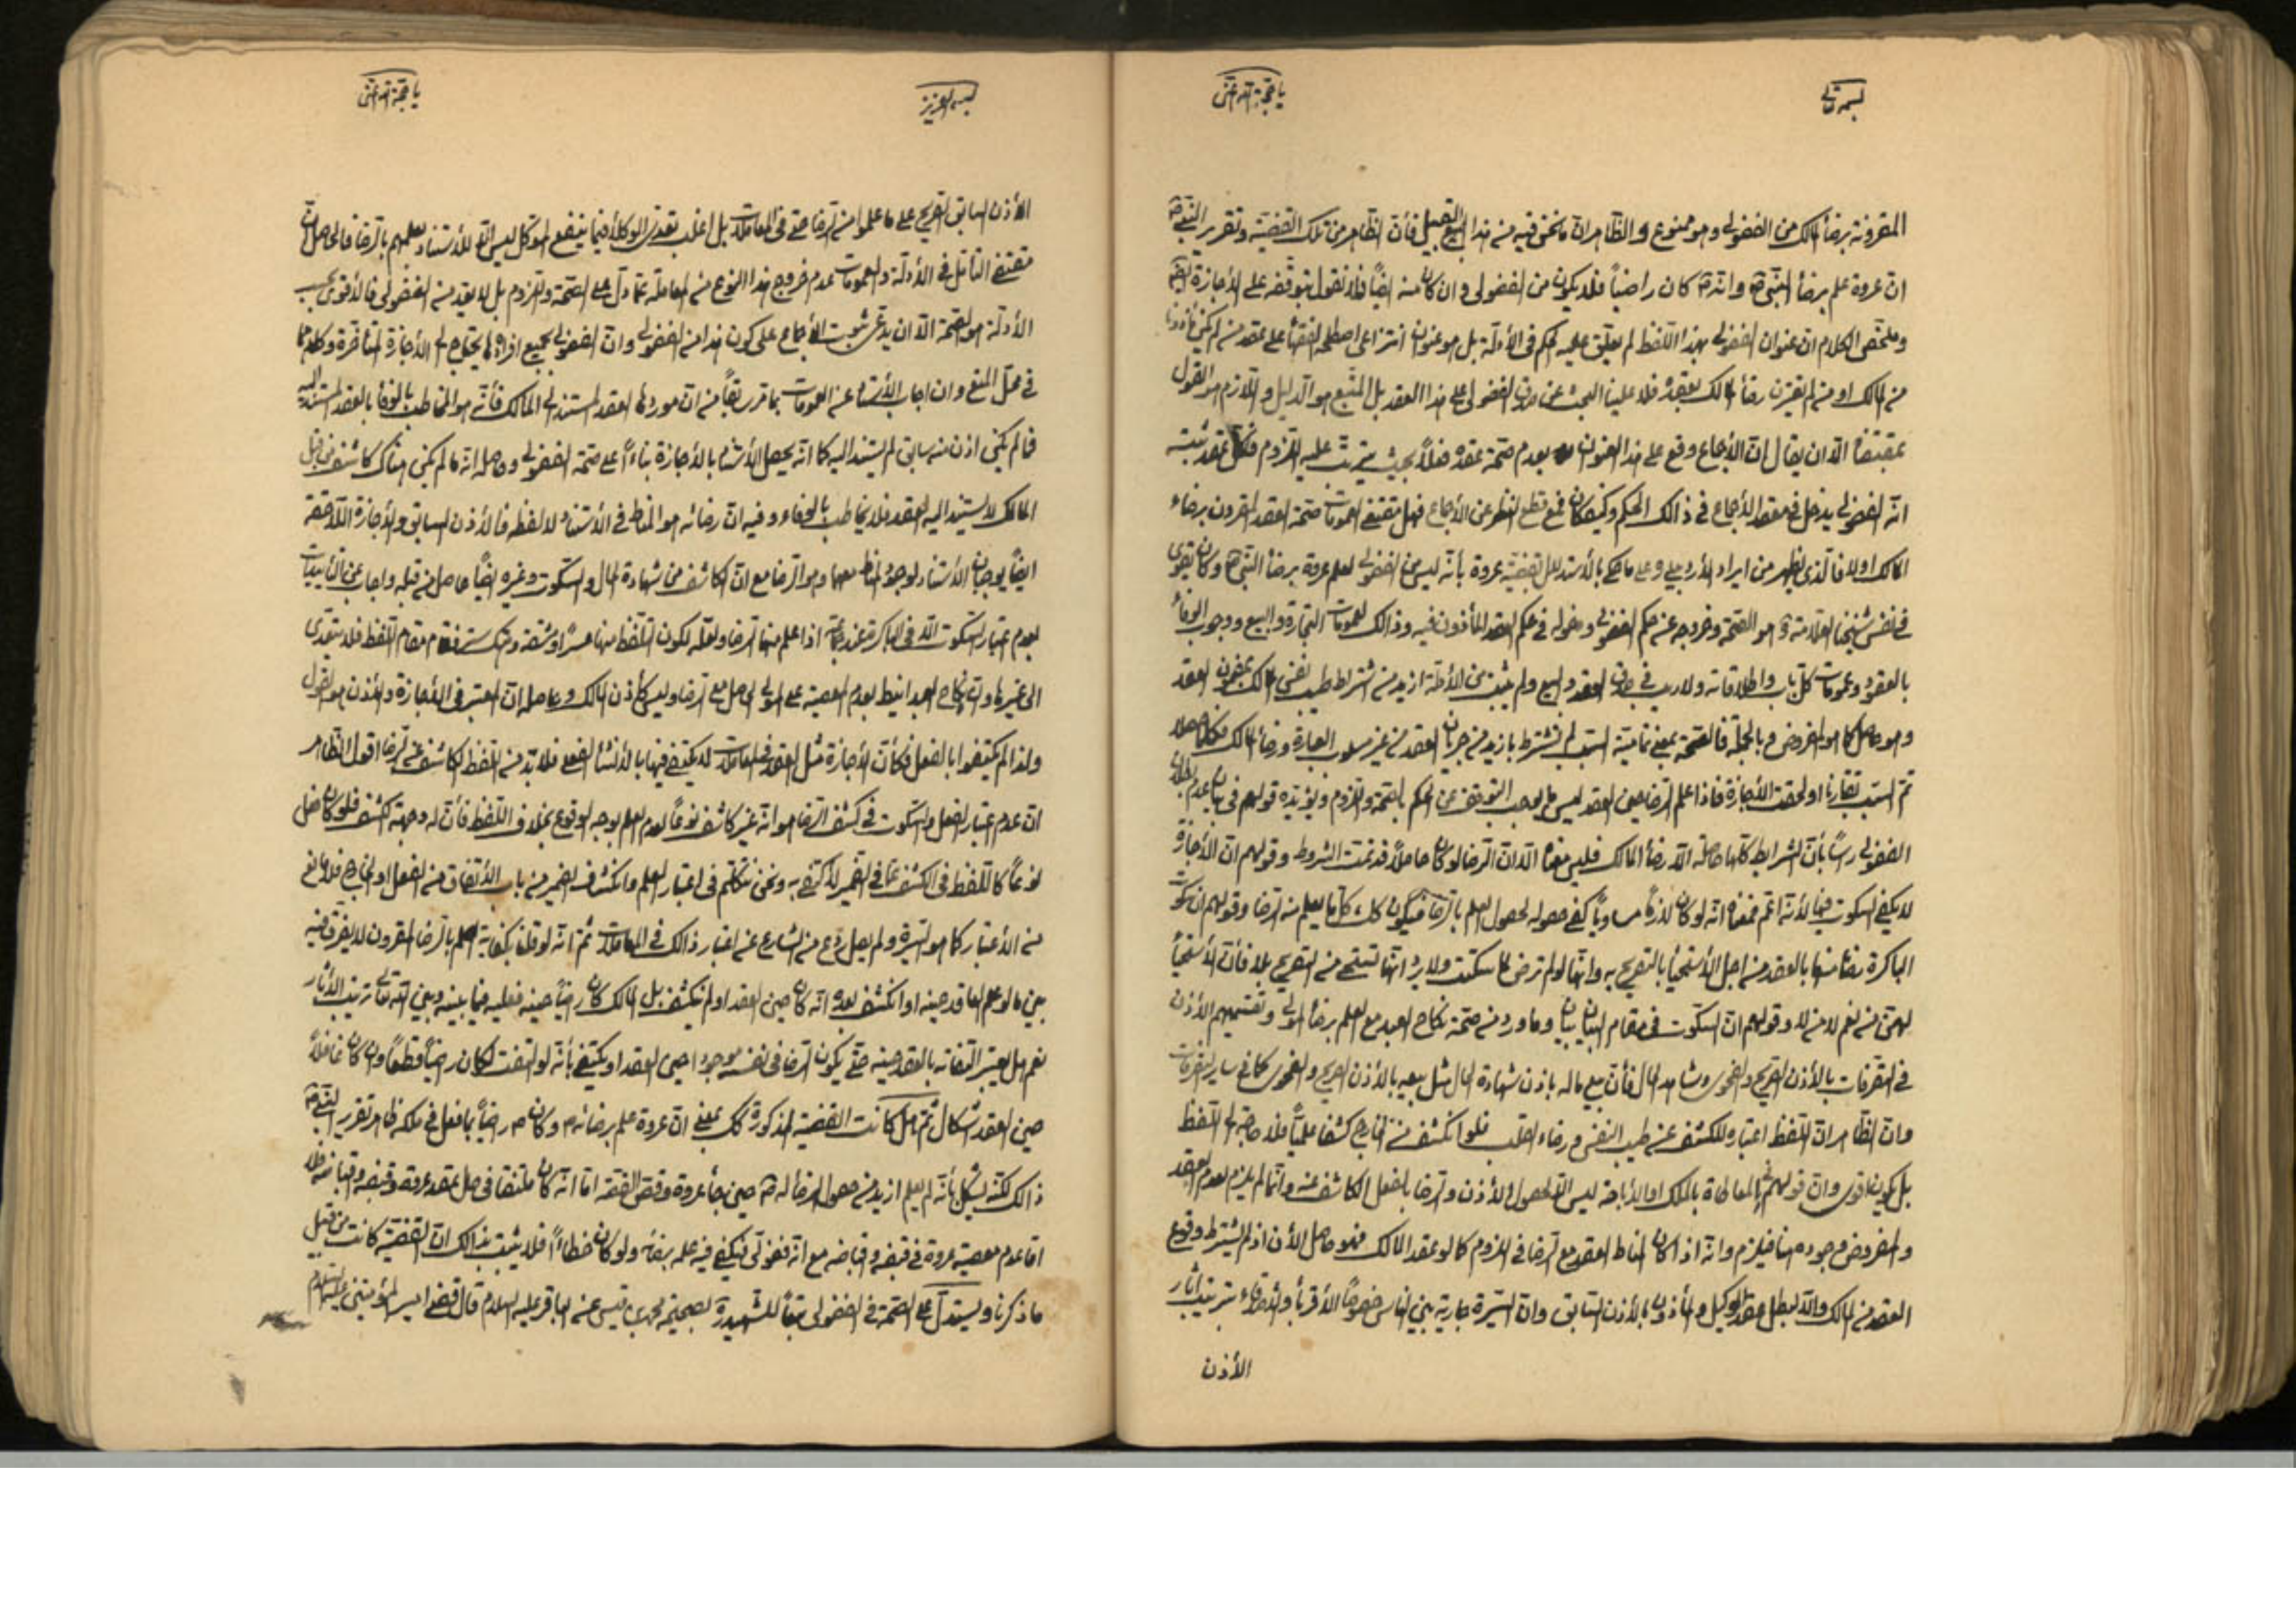 بسمه تعالى
يا حجة الله اغثنى
المقرونة برضأ المالك من الفضولى وهو ممنوع والظاهر ان ما نحن فيه من هذا القبيل فأن الظاهر من تلك القضية وتقرير النبى ص
ان عروة علم برضأ النبى ص وانه ص كان راضياً فلا يكون من الفضولى وان كان منه ايضاً فلا نقول بتوقفه على الأجازة
وملخص الكلام ان عنوان الفضولى بهذا اللفظ لم يعلق عليه حكم فى الأدلة بل هو عنوان انتزاعى اصطلح الفقهأ على عقد من لم يكن
من المالك او من لم يقترن رضأ المالك بعقده فلا علينا البحث عن صدق الفضولى على هذا العقد بل المتبع هو الدليل واللازم هو القول
بمقتضاه الا ان يقال ان الأجماع وقع على هذا العنوان بعدم صحة عقده فعلاً بحيث يترتب عليه اللزوم فكل عقد ثبت
انه الفضولى يدخل فى معقد الأجماع فى ذالك الحكم وكيف كان فمع قطع النظر عن الأجماع فهل مقتضى العمومات صحة العقد المقرون برضاء
المالك اولا فالذى يظهر من ايراد الأردبيلى وعلى ما حكى بالأستدلال بقضية عروة بأنه ليس من الفضولى لعلم عروة برضأ النبى ص وكان يقوى
فى نفس شيخنا العلامة ره هو الصحة وخروجه عن حكم الفضولى ودخوله فى حكم العقد المأذون فيه وذالك لعمومات التجارة والبيع ووجوب الوفأ
بالعقود وعمومات كل باب واطلاقاته ولا ريب فى صدق العقد والبيع ولم يثبت من الأدلة ازيد من اشتراط طيب نفس المالك بمضمون العقد
وهو حاصل كما هو المفروض وبالجملة فالصحة بمعنى تمامية السبب لم يشترط بازيد من جريان العقد من غير مسلوب العبارة ورضأ المالك
تم السبب تقارنا او لحقت الأجازة فاذا علم الرضا حين العقد ليس ما يوجب التوقف عن الحكم بالصحة واللزوم ويؤيده قولهم فى بيان عدم بطلان
الفضولى رساً بأن الشرايط كلها حاصلة الا رضأ المالك فليس معناه الا ان الرضا لو كان حاصلاً قد تمت الشروط وقولهم ان الأجازة
لا يكفى السكوت فيها لأنه اعم فمعناه انه لو كان لازماً مساوياً كفى حصوله لحصول العلم بالرضا فيكون كل ما يعلم منه الرضا وقولهم ان سكوت
الباكرة رضأ منها بالعقد من اجل الأستحيأ بالتصريح به وانها لو لم ترض لما سكتت ولا يرد انها تستحى من التصريح بلا فأن الأستحيأ
من نعم لا من لا وقولهم ان السكوت فى مقام البيان بيان وما ورد من صحة نكاح العبد مع العلم برضأ المولى وتقسيمهم الأذن
فى التصرفات بالأذن الصريح والفحوى وشاهد الحال فأن بيع ماله باذن شهادة الحال مثل بيعه بالأذن الصريح والفحوى كما فى ساير التصرفات
وان الظاهر ان التلفظ اعتباره للكشف عن طيب النفس ورضاء القلب فلو انكشف من الخارج كشفا علمياً فلا حاجة الى التلفظ
بل يكون اقوى وان قولهم بالمعاطاة بالملك او الأباحة ليس الا لحصول الأذن والرضا بالفعل الكاشف عنه وانما لم يلزم لعدم العقد
والمفروض وجوده هنا فيلزم وانه اذا كان المناط العقد مع الرضا فى اللزوم كما لو عقد المالك فهو حاصل الأن اذ لم يشترط وقوع
العقد من المالك والا لبطل عقد الوكيل والمأذون بالأذن السابق وان السيرة جارية بين الناس خصوصاً الأقربأ والأصدقاء بترتيب اثار
الأذن
بسمه العزيز
يا حجة الله اغثنى
الأذن السابق الصريح على ما علموا من الرضا حتى فى المعاملات بل اغلب تعدى الوكلأ فيما ينفع الموكل ليس الا للأستناد بعلمهم بالرضا فالحاصل ان
مقتضى التأمل فى الأدلة والعمومات عدم خروج هذا النوع من المعاملة عما دل على الصحة واللزوم بل لا يعد من الفضولى فالأقوى بحسب
الأدلة هو الصحة الا ان يدعى ثبوت الأجماع على كون هذا من الفضولى وان الفضولى بجميع افراده يحتاج الى الأجازة المتأخرة وكلاهما
فى محل المنع وان اجاب الأستاد عن العمومات بما قرر سابقاً من ان موردها العقد المستند الى المالك فأنه هو المخاطب بالوفأ بالعقد المستند اليه
فما لم يكن اذن منه سابق لم يستند اليه كما انه يحصل الأستناد بالأجازة بناءاً على صحة الفضولى وحاصله انه ما لم يكن هناك كاشف من قبل
المالك لا يستند اليه العقد فلا يخاطب بالوفاء وفيه ان رضائه هو المناط فى الأستناد لا لفظه فالأذن السابق والأجازة اللاحقة
ايضاً يوجبان الأستناد لوجود المناط معهما وهو الرضا مع ان الكاشف من شهادة الحال والسكوت وغيره ايضاً حاصل من قبله واجاب عن التأييدات
بعدم اعتبار السكوت الا فى الباكرة عند جماعة اذا علم منها الرضا ولعله لكون التلفظ منها عسراً ومشقة فقام مقام التلفظ فلا يتعدى
الى غيرها وان نكاح العبد انيط بعدم المعصية على المولى الحاصل مع الرضا وليس كأذن المالك وحاصله ان المعتبر فى الأجازة والأذن هو القول
ولذا لم يكتفوا بالفعل فكأن الأجازة مثل العقود فى المعاملات لا يكتفى فيها بالأنشأ الفعلى فلا بد من اللفظ الكاشف عن الرضا اقول الظاهر
ان عدم اعتبار الفعل والسكوت فى كشف الرضا هو انه غير كاشف نوعاً لعدم العلم بوجه الوقوع بخلاف اللفظ فأن له وجهة كشف فلو كان فعل
نوعاً كاللفظ فى الكشف عما فى الضمير لأكتفى به ونحن نتكلم فى اعتبار العلم وما انكشف الضمير من باب الأتفاق من الفعل او الخارج فلا مانع
من الأعتبار كما هو السيرة ولم يصل ردع من الشارع عن اعتبار ذالك فى المعاملات ثم انه لو قلنا بكفاية العلم بالرضا المقرون لا يفرق فيه
بين ما لو علم العاقد حينه او انكشف بعده انه كان حين العقد او لم ينكشف بل المالك كان راضياً حينه فعليه فيما بينه وبين الله تعالى ترتيب الأثار
نعم هل يعتبر التفاته بالعقد حينه حتى يكون الرضا فى نفسه موجودا حين العقد او يكتفى بأنه لو التفت لكان راضياً قطعاً وان كان غافلاً
حين العقد اشكال ثم هل كانت القضية المذكورة كك بمعنى ان عروة علم برضائه ص وكان ص راضياً بما فعل فى ملكه ظاهر تقرير النبى ص
ذالك لكنه يشكل بأنه لم يعلم ازيد من حصول الرضأ له ص حين جأ عروة وقص القصة اما انه كان ملتفتا فى حال عقد عروة وقبضه واقباضه فلا
اما عدم معصية عروة فى قبضه واقباضه مع انه فضولى فيكفى فيه علمه برضأه ولو كان خطاءاً فلا يثبت بذالك ان القضية كانت من قبيل
ما ذكرنا ويستدل على الصحة فى الفضولى تبعاً للشهيد ره بصحيحة محمد بن قيس عن الباقر عليه السلام قال قضى امير المؤمنين عليه السلام